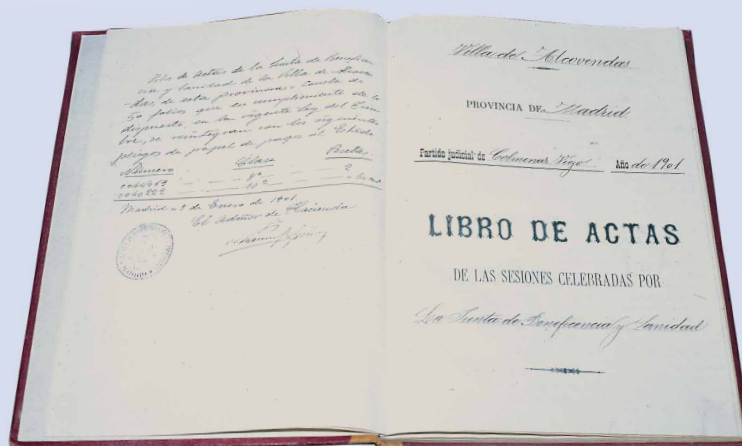 Libro de Actas de la Junta de Beneficen-
cia y Sanidad de la Villa de Alcoven-
das, de esta provincia, consta de
50 folios que en cumplimiento de lo
dispuesto en la vigente Ley del Tim-
bre, se reintegran con los siguientes
pliegos de papel de pagos al Estado
Número Clase Pesetas
8ª 2
10ª
Madrid 9 de Enero de 1901
El de Hacienda
Villa de Alcovendas
PROVINCIA DE Madrid
Partido judicial de Colmenar Viejo Año de 1901
LIBRO DE ACTAS
DE LAS SESIONES CELEBRADAS POR
La Junta de Beneficencia y Sanidad